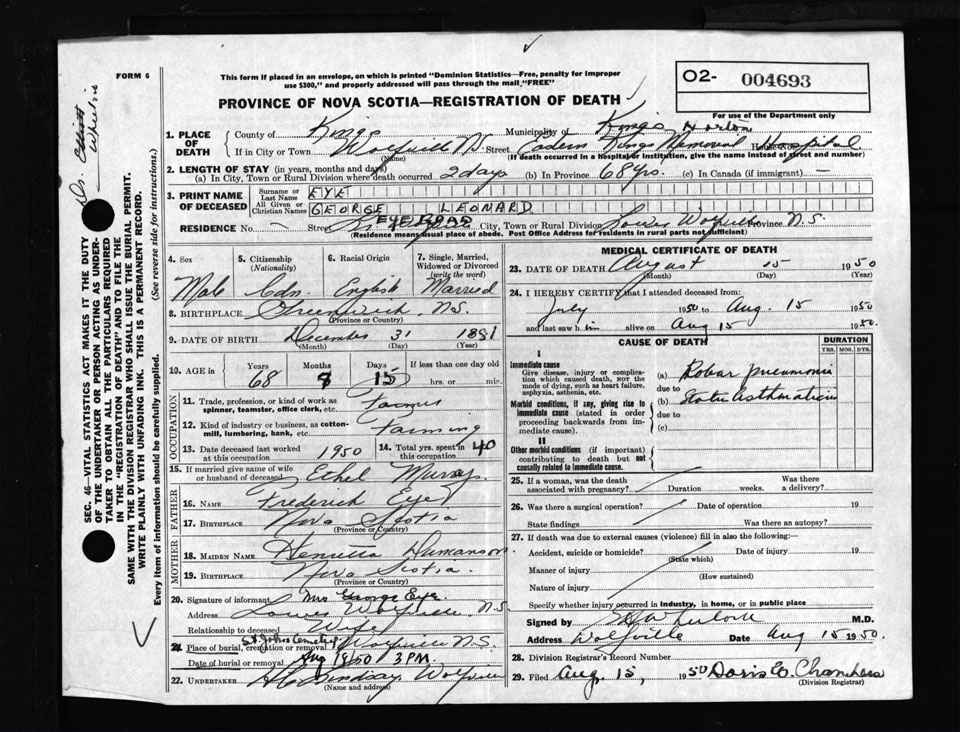 FORM 6
This form if placed in an envelope, on which is printed "Dominion Statistics—Free, penalty for improper
use $300," and properly addressed will pass through the mail "FREE"
O2- 004693
PROVINCE OF NOVA SCOTIA—REGISTRATION OF DEATH
For use of the Department only
Dr. Elliott
SEC. 46—VITAL STATISTICS ACT MAKES IT THE DUTY
OF THE UNDERTAKER OR PERSON ACTING AS UNDER-
TAKER TO OBTAIN ALL THE PARTICULARS REQUIRED
IN THE "REGISTRATION OF DEATH" AND TO FILE THE
SAME WITH THE DIVISION REGISTRAR WHO SHALL ISSUE THE BURIAL PERMIT.
WRITE PLAINLY WITH UNFADING INK. THIS IS A PERMANENT RECORD.
Every item of information should be carefully supplied. (See reverse side for instructions.)
1. PLACE OF DEATH
County of Kings Municipality of Kings Horton
If in City or Town Wolfville N.S. Street Eastern Kings Memorial Hospital
(Name) (If death occurred in a Hospital or institution, give the name instead of street and number)
2. LENGTH OF STAY (in years, months and days)
(a) In City, Town or Rural Division where death occurred 2 days (b) In Province 68 yrs. (c) In Canada (if immigrant) —
3. PRINT NAME OF DECEASED
Surname or Last Name EYE
All Given or Christian Names GEORGE LEONARD
RESIDENCE No. — Street EYE ROAD City, Town or Rural Division Lower Wolfville Province N.S.
(Residence means usual place of abode. Post Office Address for residents in rural parts not sufficient)
4. Sex Male
5. Citizenship (Nationality) Cdn.
6. Racial Origin English
7. Single, Married, Widowed or Divorced (write the word) Married
8. BIRTHPLACE Greenwich, N.S.
(Province or Country)
9. DATE OF BIRTH December 31 1881
(Month) (Day) (Year)
10. AGE in Years 68 Months 8 Days 15 If less than one day old
hrs. or min.
OCCUPATION
11. Trade, profession, or kind of work as spinner, teamster, office clerk, etc. Farmer
12. Kind of industry or business, as cotton-mill, lumbering, bank, etc. Farming
13. Date deceased last worked at this occupation 1950
14. Total yrs. spent in this occupation 40
15. If married give name of wife or husband of deceased Ethel Murray
FATHER
16. NAME Frederick Eye
17. BIRTHPLACE Nova Scotia
(Province or Country)
MOTHER
18. MAIDEN NAME Henrietta
19. BIRTHPLACE Nova Scotia.
(Province or Country)
20. Signature of informant Mrs George Eye.
Address Lower Wolfville N.S
Relationship to deceased Wife
21. Place of burial, cremation or removal St. Johns Cemetery Wolfville N.S.
Date of burial or removal Aug 1950 3 PM.
22. UNDERTAKER Lindsay Wolfville
(Name and address)
MEDICAL CERTIFICATE OF DEATH
23. DATE OF DEATH August 15 1950
(Month) (Day) (Year)
24. I HEREBY CERTIFY that I attended deceased from:
July 1950 to Aug. 15 1950
and last saw him alive on Aug 15 1950.
CAUSE OF DEATH
DURATION
YRS. MOS. DYS.
I
Immediate cause
Give disease, injury or complication which caused death, not the mode of dying, such as heart failure, asphyxia, asthenia, etc.
(a) Lobar pneumonia
due to
Morbid conditions, if any, giving rise to immediate cause (stated in order proceeding backwards from immediate cause).
(b) Status Asthmaticus
due to
(c)
II
Other morbid conditions (if important) contributing to death but not causally related to immediate cause.
25. If a woman, was the death associated with pregnancy? Duration weeks. Was there a delivery?
26. Was there a surgical operation? Date of operation 19
State findings Was there an autopsy?
27. If death was due to external causes (violence) fill in also the following:—
Accident, suicide or homicide? Date of injury 19
(State which)
Manner of injury
(How sustained)
Nature of injury
Specify whether injury occurred in industry, in home, or in public place
Signed by M.D.
Address Wolfville Date Aug 15 1950.
28. Division Registrar's Record Number
29. Filed Aug. 15, 1950 Doris E. Chambers
(Division Registrar)